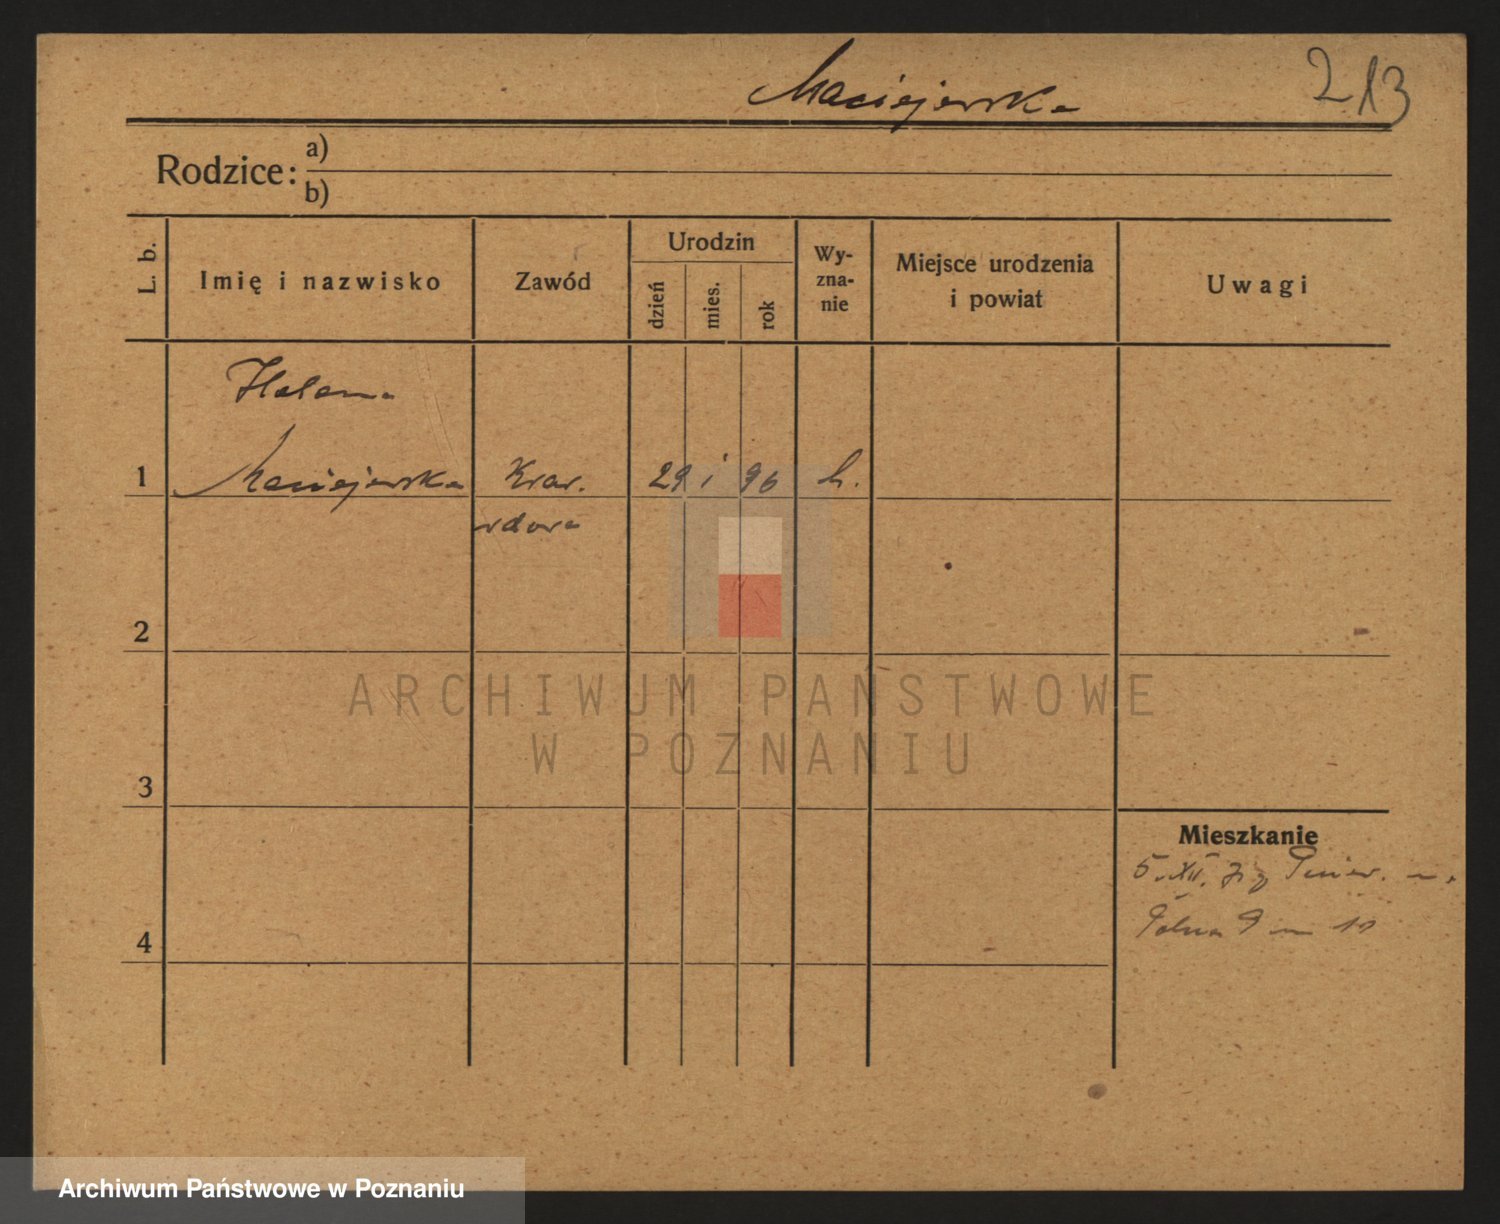 Maciejewska
213
Rodzice:
a)
b)
L. b.
Imię i nazwisko
Zawód
Urodzin
dzień
mies.
rok
Wy-
zna-
nie
Miejsce urodzenia
i powiat
Uwagi
Helena
1 Maciejewska Kraw. 29 i 96 k.
wdowa
2
3
4
Mieszkanie
5. XII.
Polna 9 m 10
ARCHIWUM PAŃSTWOWE
W POZNANIU
Archiwum Państwowe w Poznaniu